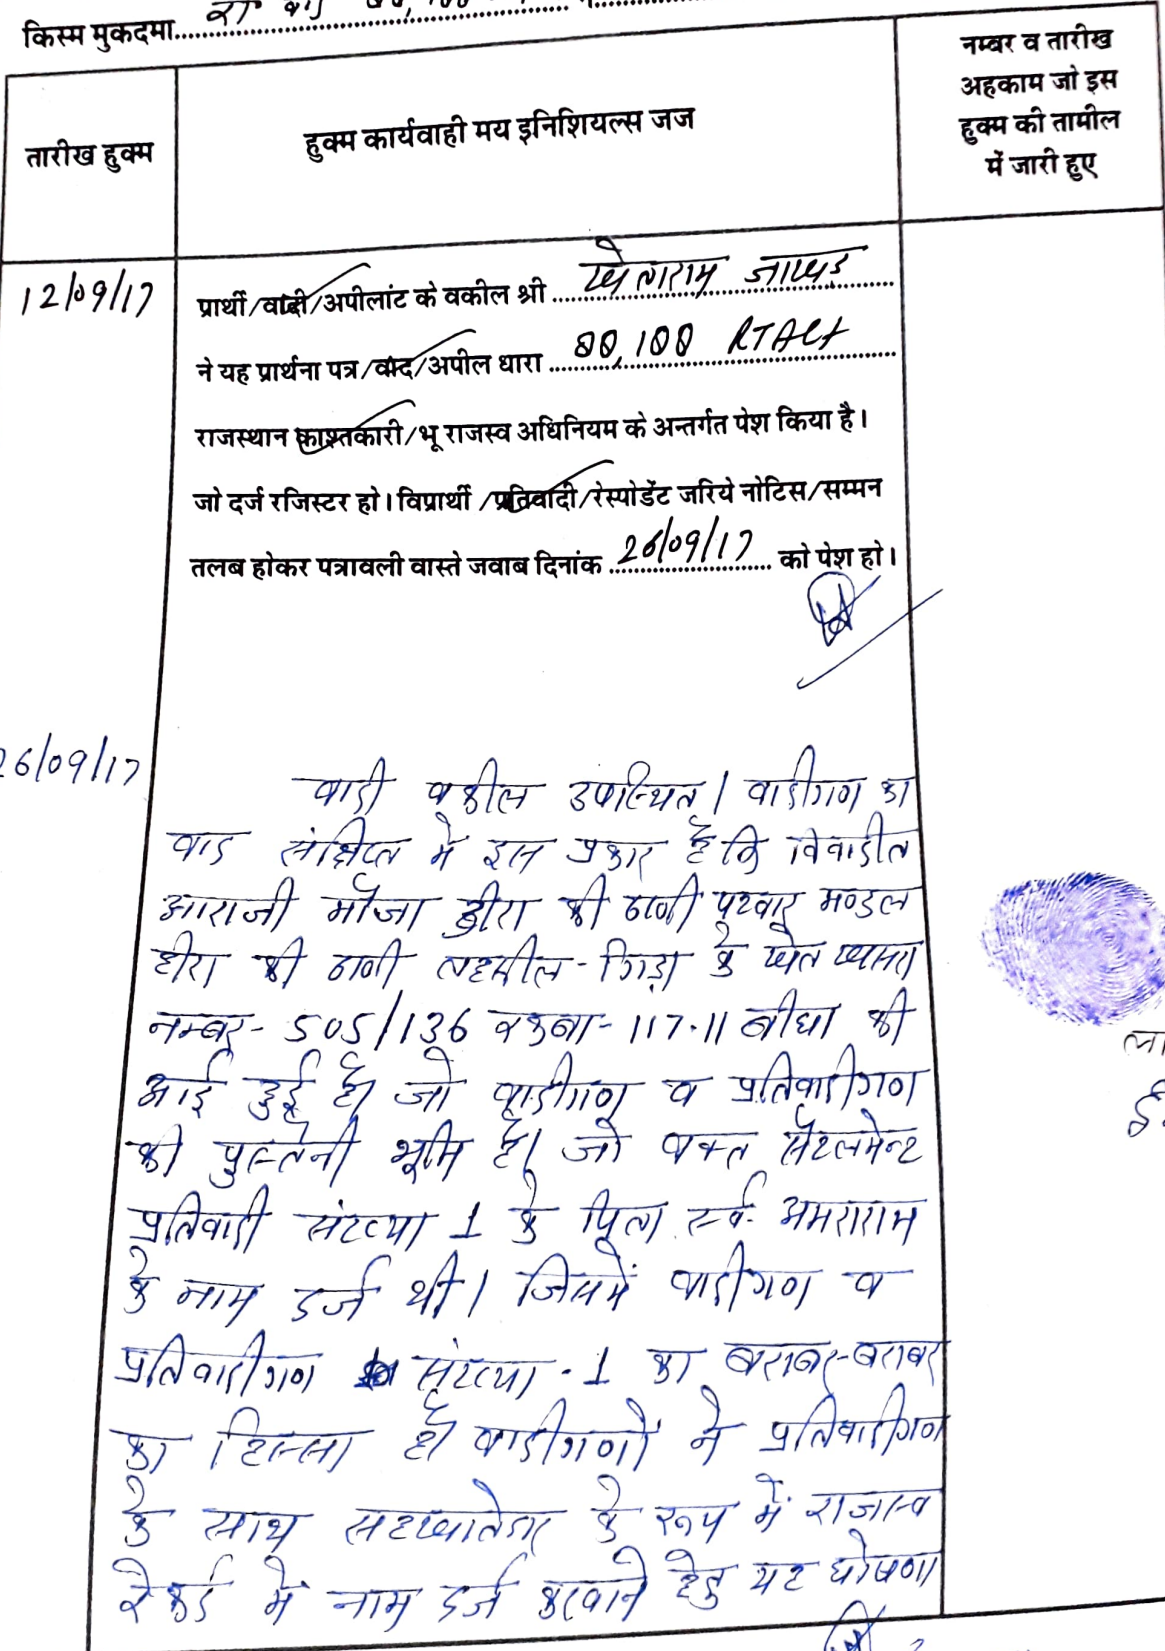 किस्म मुकदमा
तारीख हुक्म
हुक्म कार्यवाही मय इनिशियल्स जज
नम्बर व तारीख
अहकाम जो इस
हुक्म की तामील
में जारी हुए
12/09/17
प्रार्थी/वादी/अपीलांट के वकील श्री खेताराम जाखड़
ने यह प्रार्थना पत्र/वाद/अपील धारा 88,188 RTAct
राजस्थान काश्तकारी/भू राजस्व अधिनियम के अन्तर्गत पेश किया है।
जो दर्ज रजिस्टर हो। विप्रार्थी/प्रतिवादी/रेस्पोडेंट जरिये नोटिस/सम्मन
तलब होकर पत्रावली वास्ते जवाब दिनांक 26/09/17 को पेश हो।
26/09/17
वादी वकील उपस्थित। वादीगण का
वाद संक्षिप्त में इस प्रकार है कि विवादीत
आराजी मौजा हीरा की ढाणी पटवार मण्डल
हीरा की ढाणी तहसील-गिड़ा के खेत खसरा
नम्बर- 505/136 रकबा- 117.11 बीघा की
आई हुई है। जो वादीगण व प्रतिवादीगण
की पुस्तेनी भूमि है। जो वक्त सेटलमेन्ट
प्रतिवादी संख्या 1 के पिता स्व. अमराराम
के नाम दर्ज थी। जिसमें वादीगण व
प्रतिवादीगण संख्या - 1 का बराबर-बराबर
का हिस्सा है। वादीगणों ने प्रतिवादीगण
के साथ सहखातेदार के रूप में राजस्व
रेकर्ड में नाम दर्ज करवाने हेतु यह घोषणा